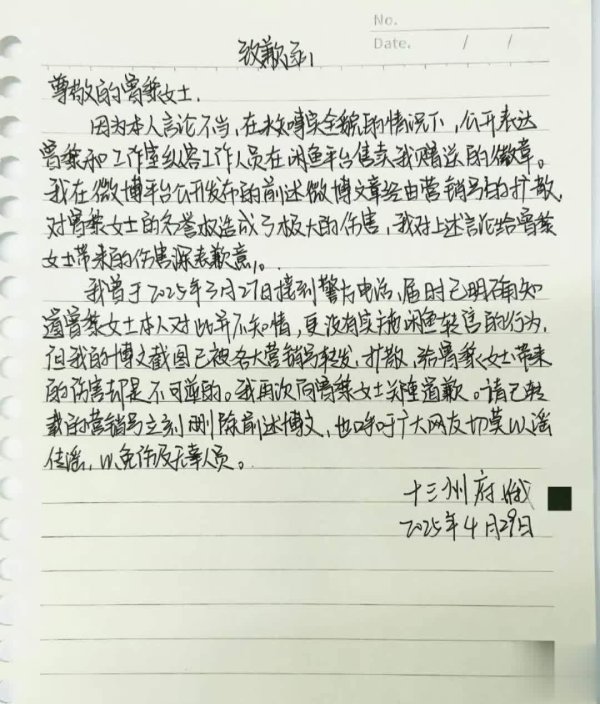 No.
Date. / /
致歉函
尊敬的曾黎女士,
因为本人言论不当,在未知事实全貌的情况下,公开表达
曾黎和工作室纵容工作人员在闲鱼平台售卖我赠送的徽章。
我在微博平台公开发布的前述微博文章经由营销号的扩散,
对曾黎女士的名誉权造成了极大的伤害,我对上述言论给曾黎
女士带来的伤害深表歉意。
我曾于2025年3月27日接到警方电话,届时已明确知
道曾黎女士本人对此并不知情,更没有实施闲鱼转售的行为,
但我的博文截图已被各大营销号转发,扩散,给曾黎女士带来
的伤害却是不可逆的。我再次向曾黎女士郑重道歉。请已转
载的营销号立刻删除前述博文,也呼吁广大网友切莫以谣
传谣,以免伤及无辜人员。
十三州府
2025年4月29日